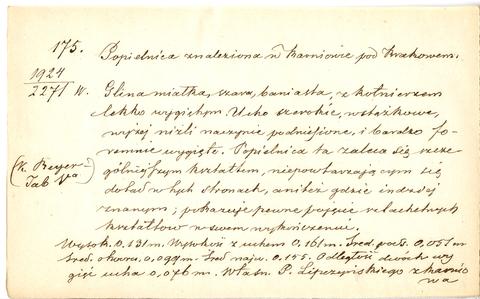 175. Popielnica znaleziona w Karniowie pod Krakowem.
1924
2271 W. Glina miałka, szara, baniasta, z kołnierzem
lekko wygiętym. Ucho szerokie, wstążkowe,
wyżej niżli naczynie podniesione, i bardzo fo-
remnie wygięte. Popielnica ta zaleca się szcze-
gólniejszym kształtem, niepowtarzającym się
(K. Beyer
Tab Va)
dotąd w tych stronach, anitéż gdzie indziej
znanym; pokazuje pewne pojęcie szlachetnych
kształtów w swem wykończeniu.
Wysok. 0,131 m. Wysokość z uchem 0,161 m. Śred. podst. 0,051 m
Śred. otworu, 0,099 m. Śred najw. 0.155. Odległość dwóch wy
gięć ucha 0,076 m. Własn. P. Lipczyńskiego z Karnio
wa